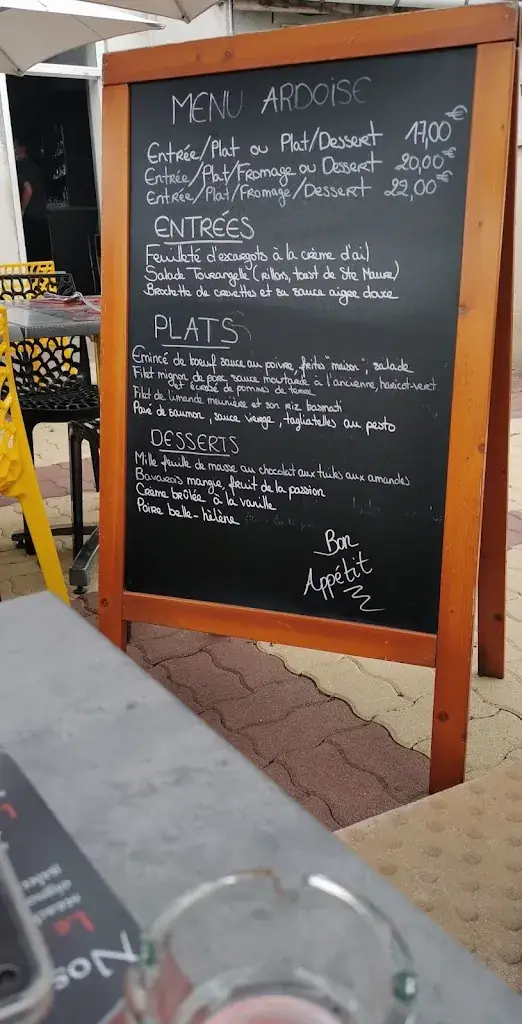 MENU ARDOISE
Entrée/Plat ou Plat/Dessert 17,00€
Entrée/Plat/Fromage ou Dessert 20,00€
Entrée/Plat/Fromage/Dessert 22,00€
ENTRÉES
Feuilleté d'escargots à la crème d'ail
Salade Tourangelle (rillons, toast de Ste Maure)
Brochette de crevettes et sa sauce aigre douce
PLATS
Emincé de boeuf sauce au poivre, frites "maison", salade
Filet mignon de porc sauce moutarde à l'ancienne, haricot-vert
et écrasé de pommes de terre
Filet de limande meunière et son riz basmati
Pavé de saumon, sauce vierge, tagliatelles au pesto
DESSERTS
Mille feuille de mousse au chocolat aux tuiles aux amandes
Bavarois mangue, fruit de la passion
Crème brûlée à la vanille
Poire belle-hélène
Bon
Appétit
Nos